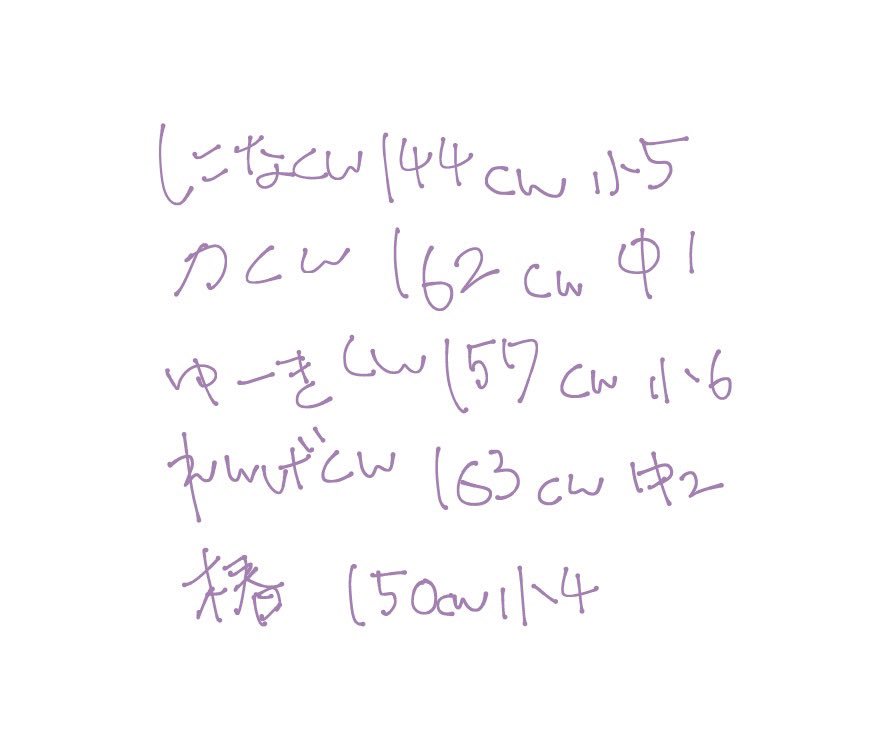 になcw 144cm 小5
カcw 162cm 中1
ゆーきcw 157cm 小6
れんげcw 163cm 中2
椿 150cm 小4